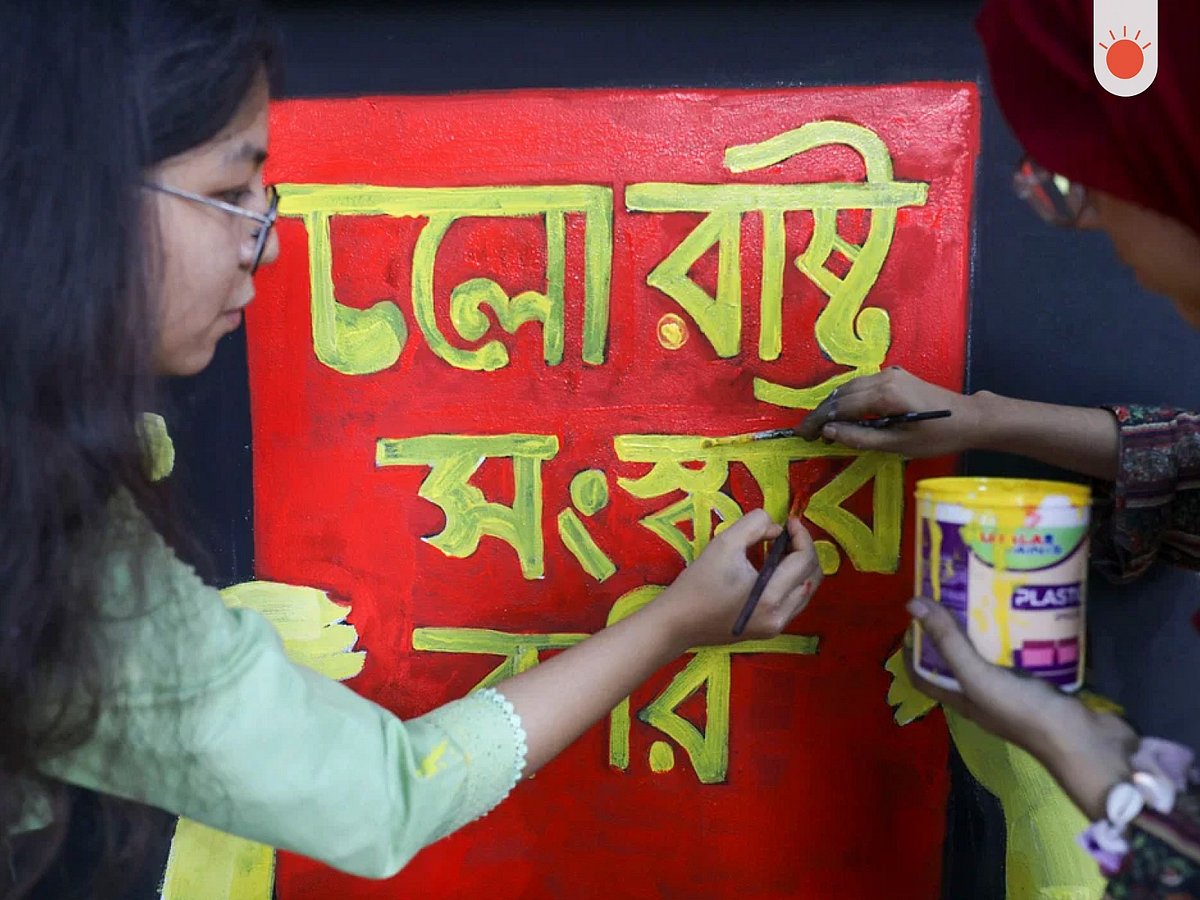 চলো রাষ্ট্র
সংস্কার
করি
PLAST